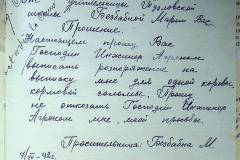 От учительницы Тузловской
школы Беэбабной Марии Вас.
Прошение.
Настоящем прошу Вас
Господин Инженер Агроном
выписать распоряжение на
выписку мне для одной коровы
кормовой соломы. Прошу
не отказать Господин Инженер
Агроном мне моей просьбы.
Просительница: Беэбабна М.